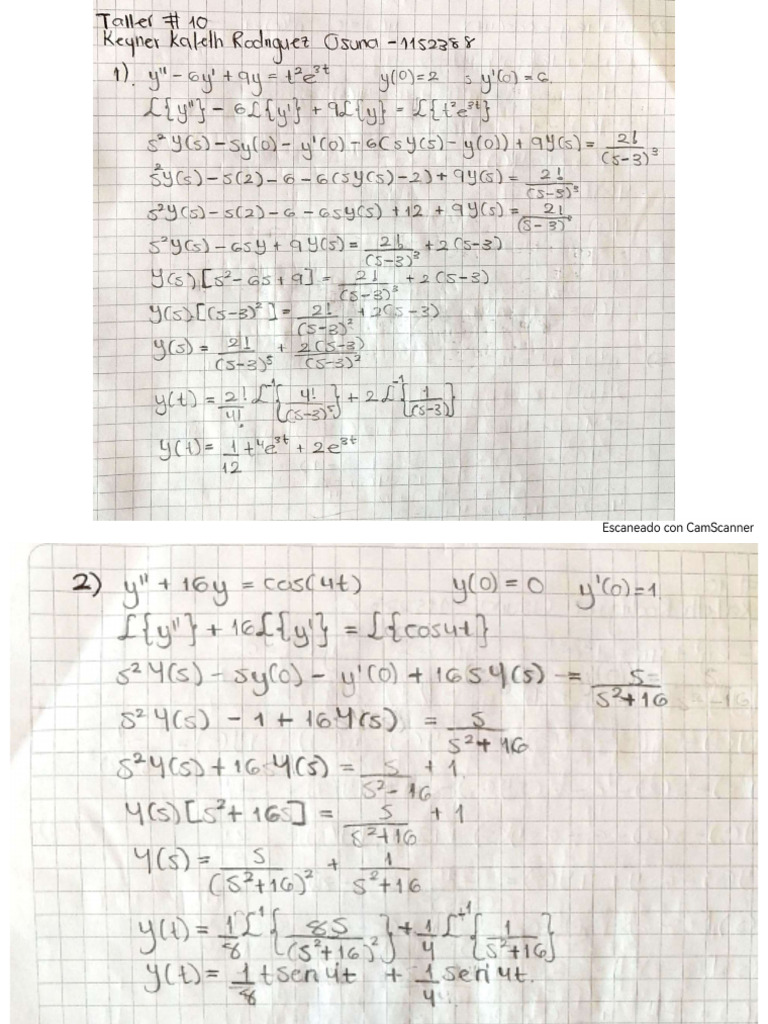 Taller # 10
Keyner Kaleth Rodriguez Osuna - 1152388
1). y'' - 6y' + 9y = t²e³ᵗ y(0)=2 ; y'(0)=6.
ℒ{y''} - 6ℒ{y'} + 9ℒ{y} = ℒ{t²e³ᵗ}
s²Y(s) - sy(0) - y'(0) - 6(sY(s) - y(0)) + 9Y(s) = 2!/(s-3)³
s²Y(s) - s(2) - 6 - 6(sY(s) - 2) + 9Y(s) = 2!/(s-3)³
s²Y(s) - s(2) - 6 - 6sY(s) + 12 + 9Y(s) = 2!/(s-3)³
s²Y(s) - 6sY + 9Y(s) = 2!/(s-3)³ + 2(s-3)
Y(s)[s² - 6s + 9] = 2!/(s-3)³ + 2(s-3)
Y(s)[(s-3)²] = 2!/(s-3)² + 2(s-3)
Y(s) = 2!/(s-3)⁵ + 2(s-3)/(s-3)²
y(t) = 2!/4! ℒ⁻¹{4!/(s-3)⁵} + 2ℒ⁻¹{1/(s-3)}
y(t) = 1/12 t⁴e³ᵗ + 2e³ᵗ
Escaneado con CamScanner
2) y'' + 16y = cos(4t) y(0) = 0 y'(0)=1.
ℒ{y''} + 16ℒ{y'} = ℒ{cos4t}
s²Y(s) - sy(0) - y'(0) + 16sY(s) = s/s²+16
s²Y(s) - 1 + 16Y(s) = s/s²+16
s²Y(s) + 16Y(s) = s/s²-16 + 1
Y(s)[s² + 16s] = s/s²+16 + 1
Y(s) = s/(s²+16)² + 1/s²+16
y(t) = 1/8 ℒ⁻¹{8s/(s²+16)²} + 1/4 ℒ⁺¹{1/s²+16}
y(t) = 1/8 tsen4t + 1/4 sen4t.